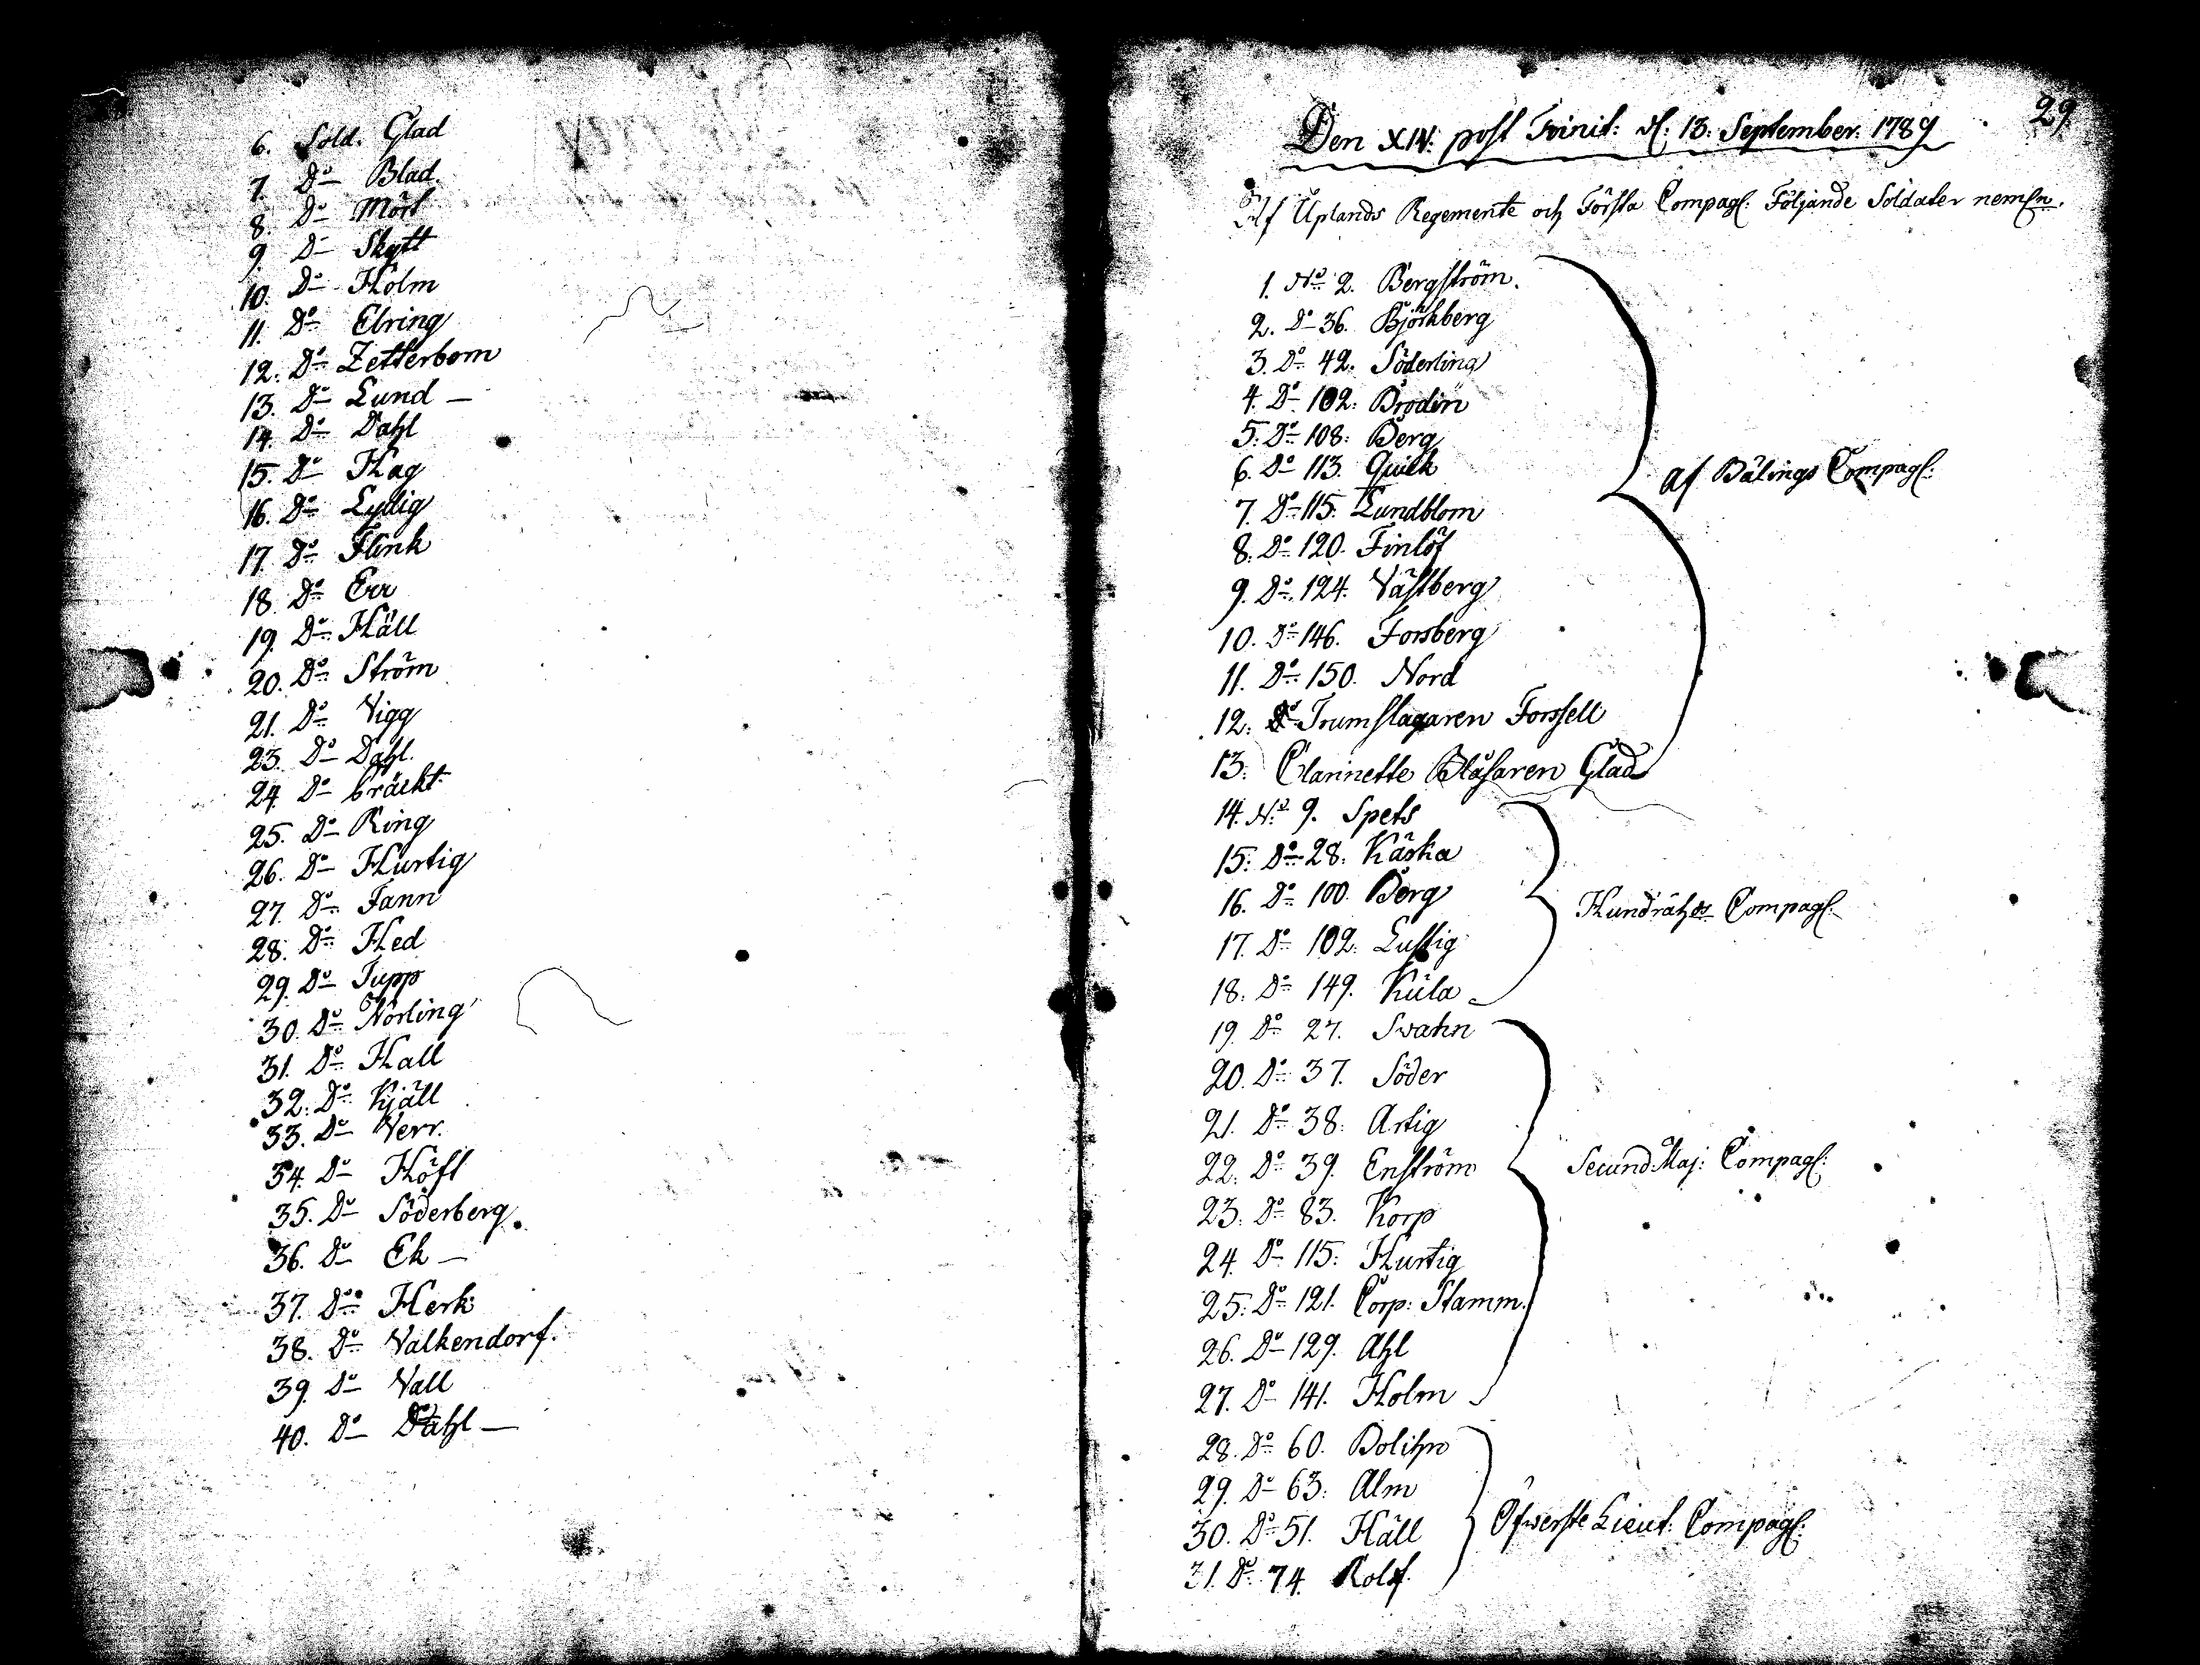 6. Sold. Glad
7. Do Blad.
8. Do Mört
9. Do Skytt
10. Do Holm
11. Do Elving
12. Do Zetterbom
13. Do Lund —
14. Do Dahl
15. Do Hag
16. Do Lydig
17. Do Flink
18. Do Err
19. Do Häll
20. Do Ström
21. Do Vigg
23. Do Dahl.
24. Do bräckt.
25. Do Ring
26. Do Hurtig
27. Do Fann
28. Do Hed
29. Do Tupp
30. Do Norling
31. Do Hall
32. Do Kjäll
33. Do Verr.
34. Do Höft
35. Do Söderberg.
36. Do Ek —
37. Do Herk
38. Do Valkendorf.
39. Do Vall
40. Do Dahl —
29.
Den XIV: post Trinit: d: 13: September. 1789
Af Uplands Regemente och Första Compag: Följande Soldater neml.
1. No 2. Bergström.
2. Do 36. Björkberg
3. Do 42. Söderling
4. Do 102: Brodin
5. Do 108: Berg
6. Do 113. Quick
7. Do 115. Lundblom
8. Do 120. Finlöf
9. Do 124. Västberg
10. Do 146. Forsberg
11. Do 150. Nord
12. Trumslagaren Forssell
13. Clarinette Blåsaren Glad
af Bälings Compag:
14. No 9. Spets
15. Do 28. Käska
16. Do 100. Berg
17. Do 102. Lustig
18. Do 149. Kula
Compag:
19. Do 27. Svahn
20. Do 37. Söder
21. Do 38. Artig
22. Do 39. Enström
23. Do 83. Korp
24. Do 115: Hurtig
25. Do 121. Corp: Stamm.
26. Do 129. Ahl
27. Do 141. Holm
Secund Maj: Compag:
28. Do 60.
29. Do 63: Alm
30. Do 51. Häll
31. Do 74. Rolf.
Öfwerste Lieut: Compag: